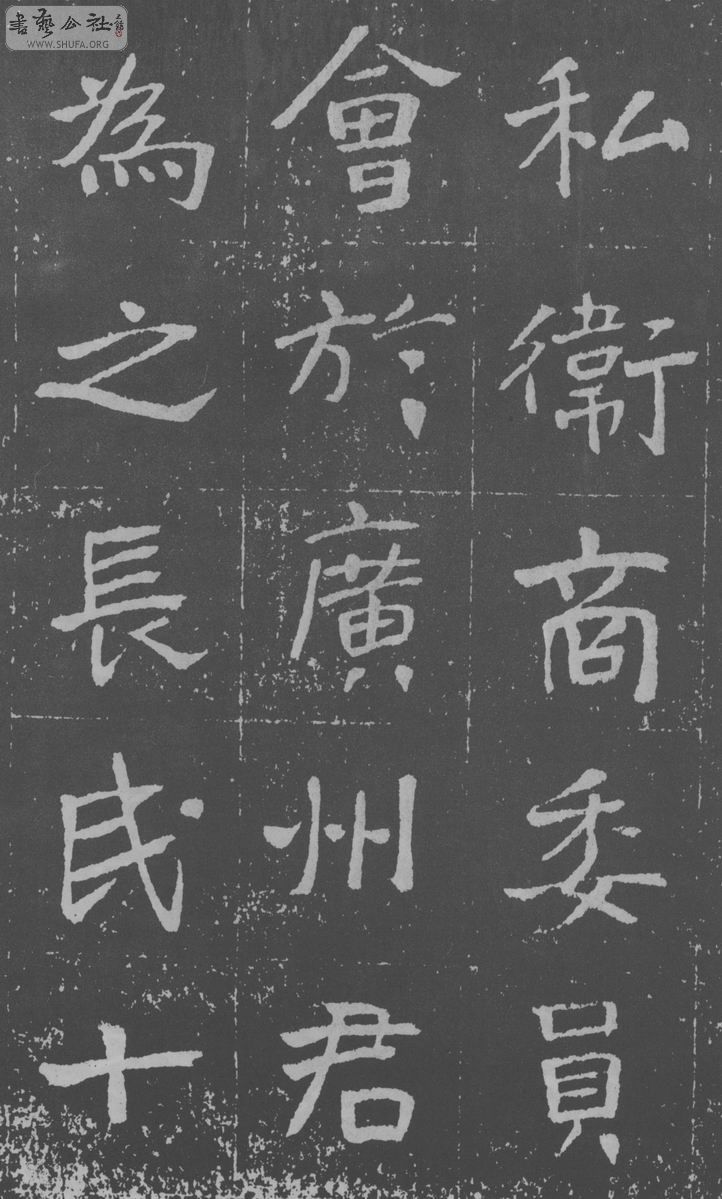 書藝公社
WWW.SHUFA.ORG
私衛商委員
會於廣州君
為之長民十